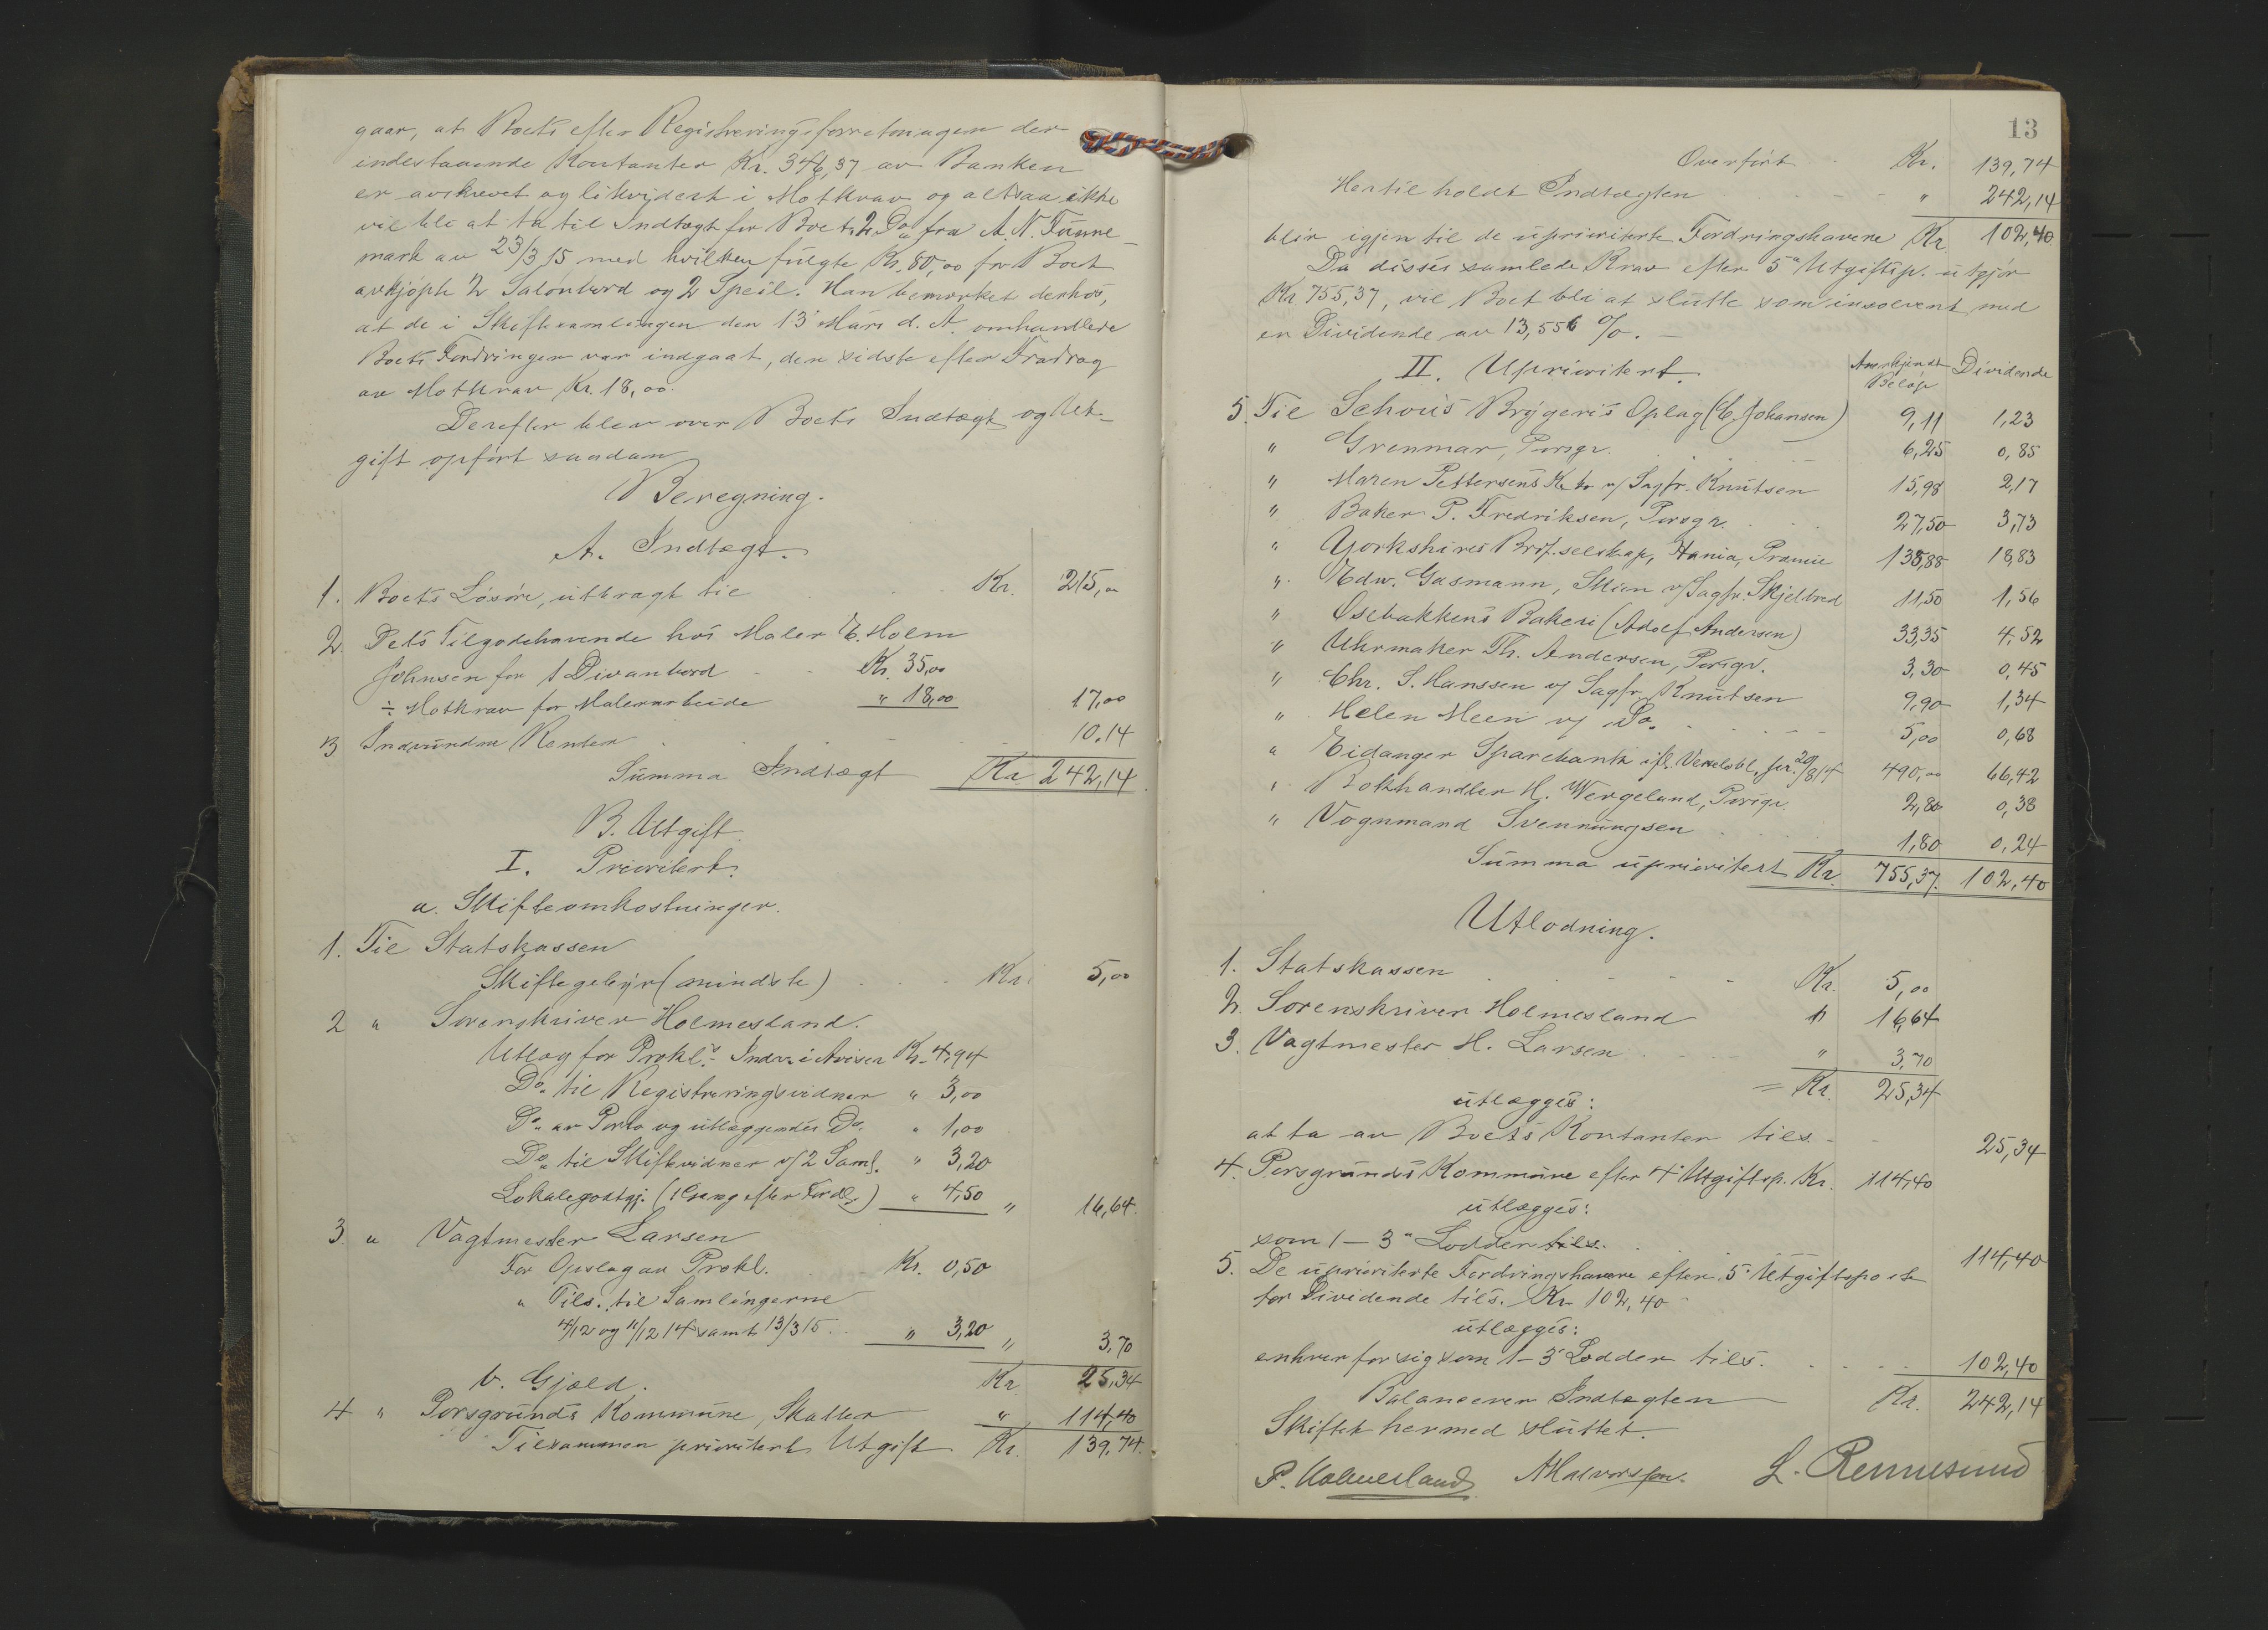 gaar, at Boets efter Registreringsforretningen der
indestaaende Kontanter Kr. 346,37 av Banken
er avskrevet og likvidert i Motkrav og altsaa ikke
vil bli at ta til Indtægt for Boet. 2. Do fra A. N. Funne-
mark av 23/3 15 med hvilken fulgte Kr. 50,00 for Boet
avkjøpte 2 Salonbord og 2 Speil. Han bemerket derhos,
at de i Skiftesamlingen den 13' Mars d. A. omhandlede
Boets Fordringer var indgaat, den sidste efter Fradrag
av Motkrav Kr. 18,00.
Derefter blev over Boets Indtægt og Ut-
gift opført saadan
Beregning.
A. Indtægt.
1. Boets Løsøre, utbragt til Kr. 215,00
2. Dets Tilgodehavende hos Maler E. Holm
Johnsen for 1 Divanbord Kr. 35,00
÷ Motkrav for Malerarbeide " 18,00 17,00
3 Indvundne Renter 10,14
Summa Indtægt Kr. 242,14
B. Utgift.
I. Prioritert.
a. Skifteomkostninger.
1. Til Statskassen
Skiftegebyr (mindste) Kr. 5,00
2 " Sorenskriver Holmesland.
Utlæg for Prokl.s Indr. i Aviser Kr. 4,94
Do. til Registreringsvidner " 3,00
Do. av Porto og utlæggendes Do. " 1,00
Do. til Skiftevidner v/ 2 Saml. " 3,20
Lokalegodtgj. (1 Gang efter Fordl.) " 4,50 " 16,64
3. " Vagtmester Larsen
For Opslag av Prokl. Kr. 0,50
" Tils. til Samlingerne
4/12 og 11/12 14 samt 13/3 15 .. " 3,20 " 3,70
b. Gjæld. Kr. 25,34
4 " Porsgrunds Kommune, Skatter " 114,40
Tilsammen prioritert Utgift Kr. 139,74
13
Overført Kr. 139,74
Hertil holdt Indtægten " 242,14
blir igjen til de uprioriterte Fordringshavere Kr. 102,40
Da disses samlede Krav efter 5" Utgiftsp. utgjør
Kr. 755,37, vil Boet bli at slutte som insolvent med
en Dividende av 13,556 %. -
II. Uprioritert. Anerkjendt Beløp Dividende
5. Til Schous Bryggeris Oplag (C. Johansen) 9,11 1,23
" Grenmar, Porsgr. 6,25 0,85
" Maren Pettersens v/ Sagfr. Knutsen 15,98 2,17
" Baker P. Fredriksen, Porsgr. 27,50 3,73
" Yorkshires Brdf.selskap, Krania, Præmie 138,88 18,83
" Edw. Gasmann, Skien v/ Sagfr. Skjelbred 11,50 1,56
" Osebakkens Bakeri (Adolf Andersen) 33,35 4,52
" Uhrmaker Th. Andersen, Porsgr. 3,30 0,45
" Chr. S. Hanssen v/ Sagfr. Knutsen 9,90 1,34
" Helen Meen v/ Do. 5,00 0,68
" Eidanger Sparebank ifl. Vexelobl. for. 29/8 14 490,00 66,42
" Bokhandler H. Wergeland, Porsgr. 2,80 0,38
" Vognmand Svennungsen 1,80 0,24
Summa uprioritert Kr. 755,37 102,40
Utlodning.
1. Statskassen Kr. 5,00
2. Sorenskriver Holmesland " 16,64
3. Vagtmester H. Larsen " 3,70
= Kr. 25,34
utlægges:
at ta av Boets Kontanter tils. 25,34
4. Porsgrunds Kommune efter 4' Utgiftsp. Kr. 114,40
utlægges:
som 1 - 3" Lodder tils. 114,40
5. De uprioriterte Fordringshavere efter 5' Utgiftspost
for Dividende tils. Kr. 102,40
utlægges:
enhver for sig som 1 - 3' Lodder tils. 102,40
Balancerer Indtægten Kr. 242,14
Skiftet hermed sluttet.
P. Holmesland AHalvorsen. L. Rennesund